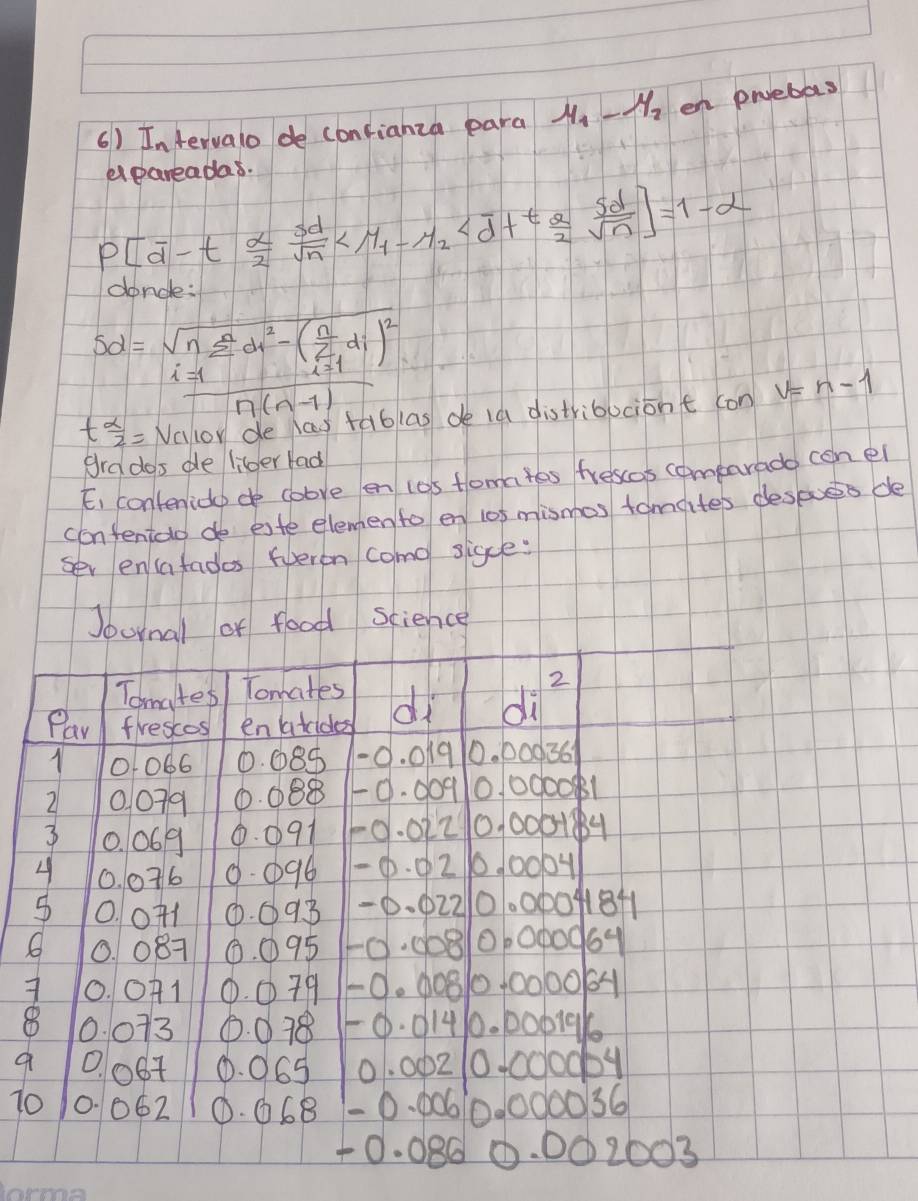 6) Intervalo de confianza para M₁ - M₂ en pruebas
apareadas.
P[d̄ - t α/2 Sd/√n < M₁ - M₂ < d̄ + t α/2 Sd/√n] = 1 - α
donde:
Sd = √n Σ di² - (Σ di)²
i=1 n i=1
n(n-1)
t α/2 = Valor de las tablas de la distribución t con V = n - 1
grados de libertad
El contenido de cobre en los tomates frescos comparado con el
contenido de este elemento en los mismos tomates después de
ser enlatados fueron como sigue:
Journal of food Science
Par Tomates frescos Tomates enlatados di di²
1 0.066 0.085 -0.019 0.000361
2 0.079 0.088 -0.009 0.000081
3 0.069 0.091 -0.022 0.000484
4 0.076 0.096 -0.02 0.0004
5 0.071 0.093 -0.022 0.000484
6 0.087 0.095 -0.008 0.000064
7 0.071 0.079 -0.008 0.000064
8 0.073 0.078 -0.014 0.000196
9 0.067 0.065 0.002 0.000004
10 0.062 0.068 -0.006 0.000036
-0.086 0.002003
Norma